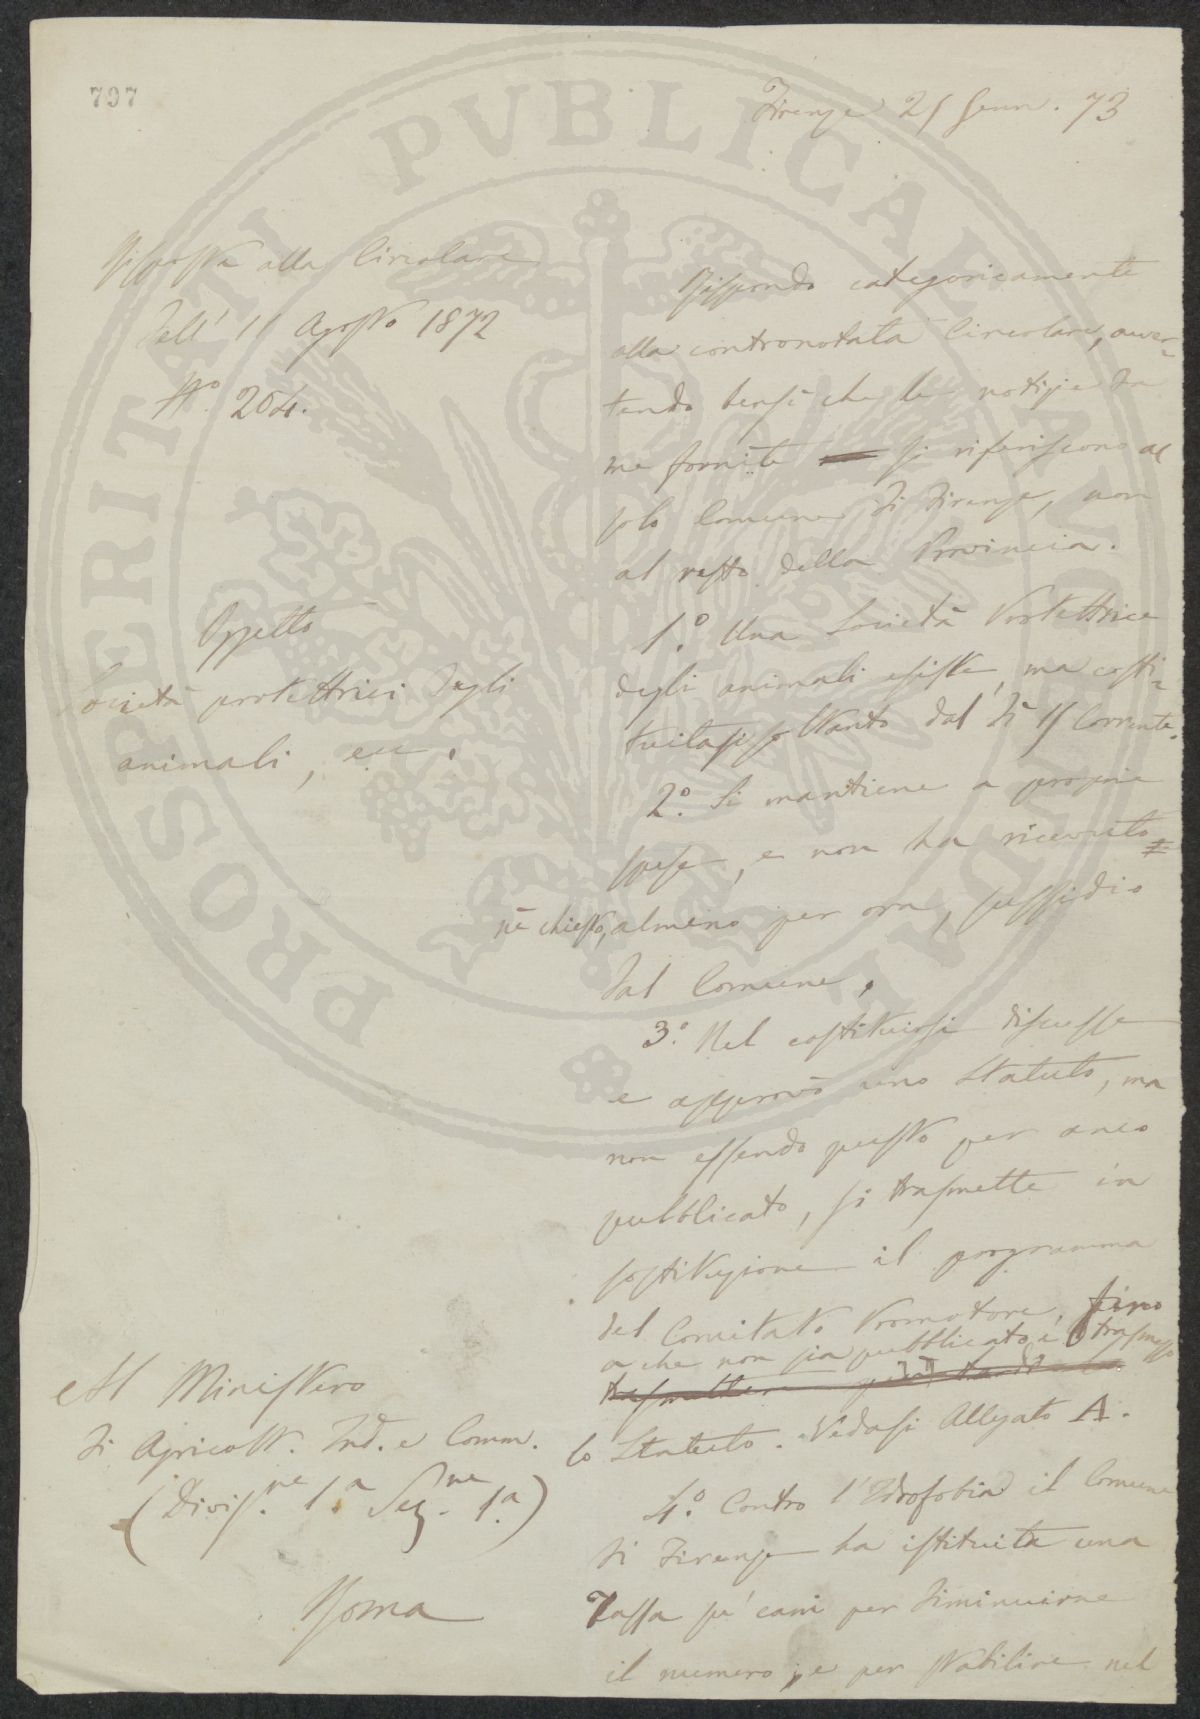 797
Firenze 25 Genn. 73
Risposta alla Circolare
dell' 11 Agosto 1872
N.º 204.
Oggetto
Società protettrici degli
animali, ecc.
Al Ministero
di Agricolt. Ind. e Comm.
(Divis.ne 1.a Sez.ne 1.a)
Roma
Rispondo categoricamente
alla contronotata Circolare, avver-
tendo bensì che le notizie da
me fornite si riferiscono al
solo Comune di Firenze, non
al resto della Provincia.
1.º Una Società Protettrice
degli animali esiste, ma costi-
tuitasi soltanto dal dì 15 Corrente.
2.º Si mantiene a proprie
spese, e non ha ricevuto
nè chiesto, almeno per ora, sussidio
dal Comune.
3.º Nel costituirsi discusse
e approvò uno Statuto, ma
non essendo questo per anco
pubblicato, si trasmette in
sostituzione il programma
del Comitato Promotore, fino
a che non sia pubblicato e trasmesso
lo Statuto. Vedasi Allegato A.
4.º Contro l'Idrofobia il Comune
di Firenze ha istituita una
Tassa su' cani per diminuirne
il numero, e per stabilire nel
PROSPERITATI PVBLICAE AVGENDAE